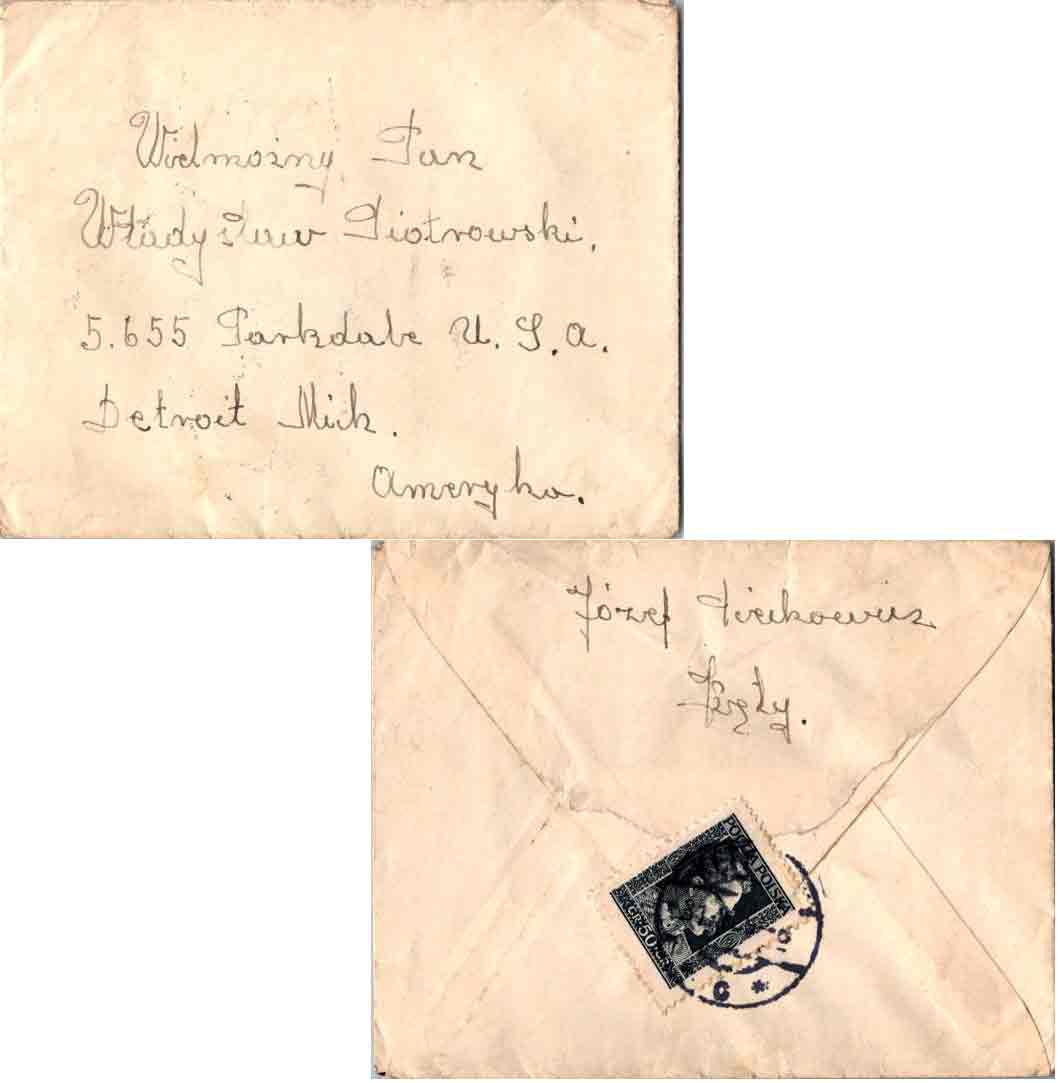 Wielmożny Pan
Władysław Piotrowski.
5.655 Parkdale U. S. A.
Detroit Mich.
Ameryka.
Józef
POCZTA POLSKA
GR·50·GR